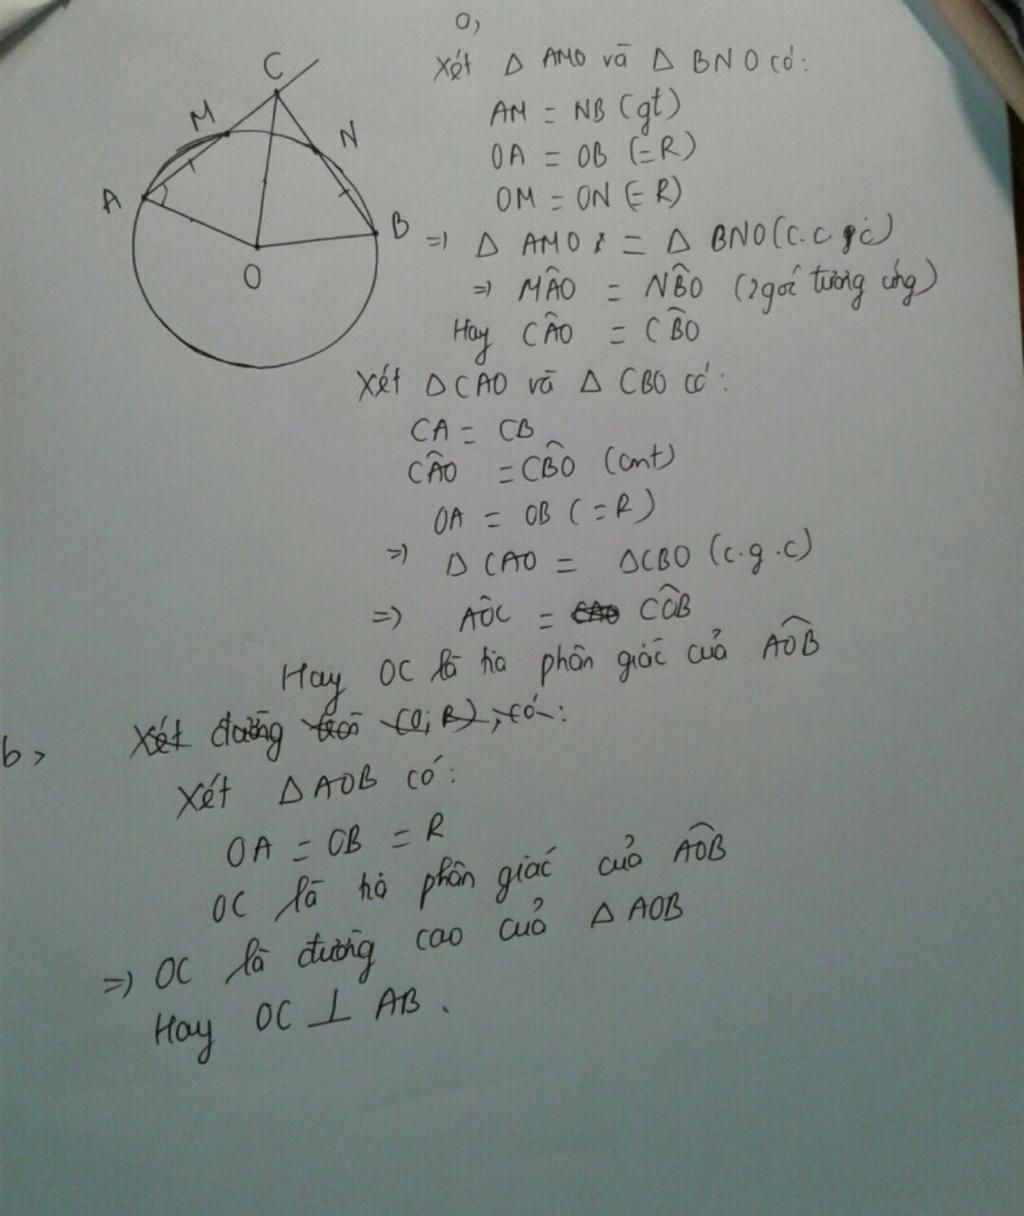 C
M
N
A
B
O
a,
Xét Δ AMO và Δ BNO có:
AM = NB (gt)
OA = OB (=R)
OM = ON (=R)
=> Δ AMO = Δ BNO (c.c.c)
=> MÂO = NB̂O (2 góc tương ứng)
Hay CÂO = CB̂O
Xét Δ CAO và Δ CBO có:
CA = CB
CÂO = CB̂O (cmt)
OA = OB (=R)
=> Δ CAO = ΔCBO (c.g.c)
=> AÔC = CÔB
Hay OC là tia phân giác của AÔB
b, Xét đường tròn (O; R), có:
Xét Δ AOB có:
OA = OB = R
OC là tia phân giác của AÔB
=> OC là đường cao của Δ AOB
Hay OC ⊥ AB.